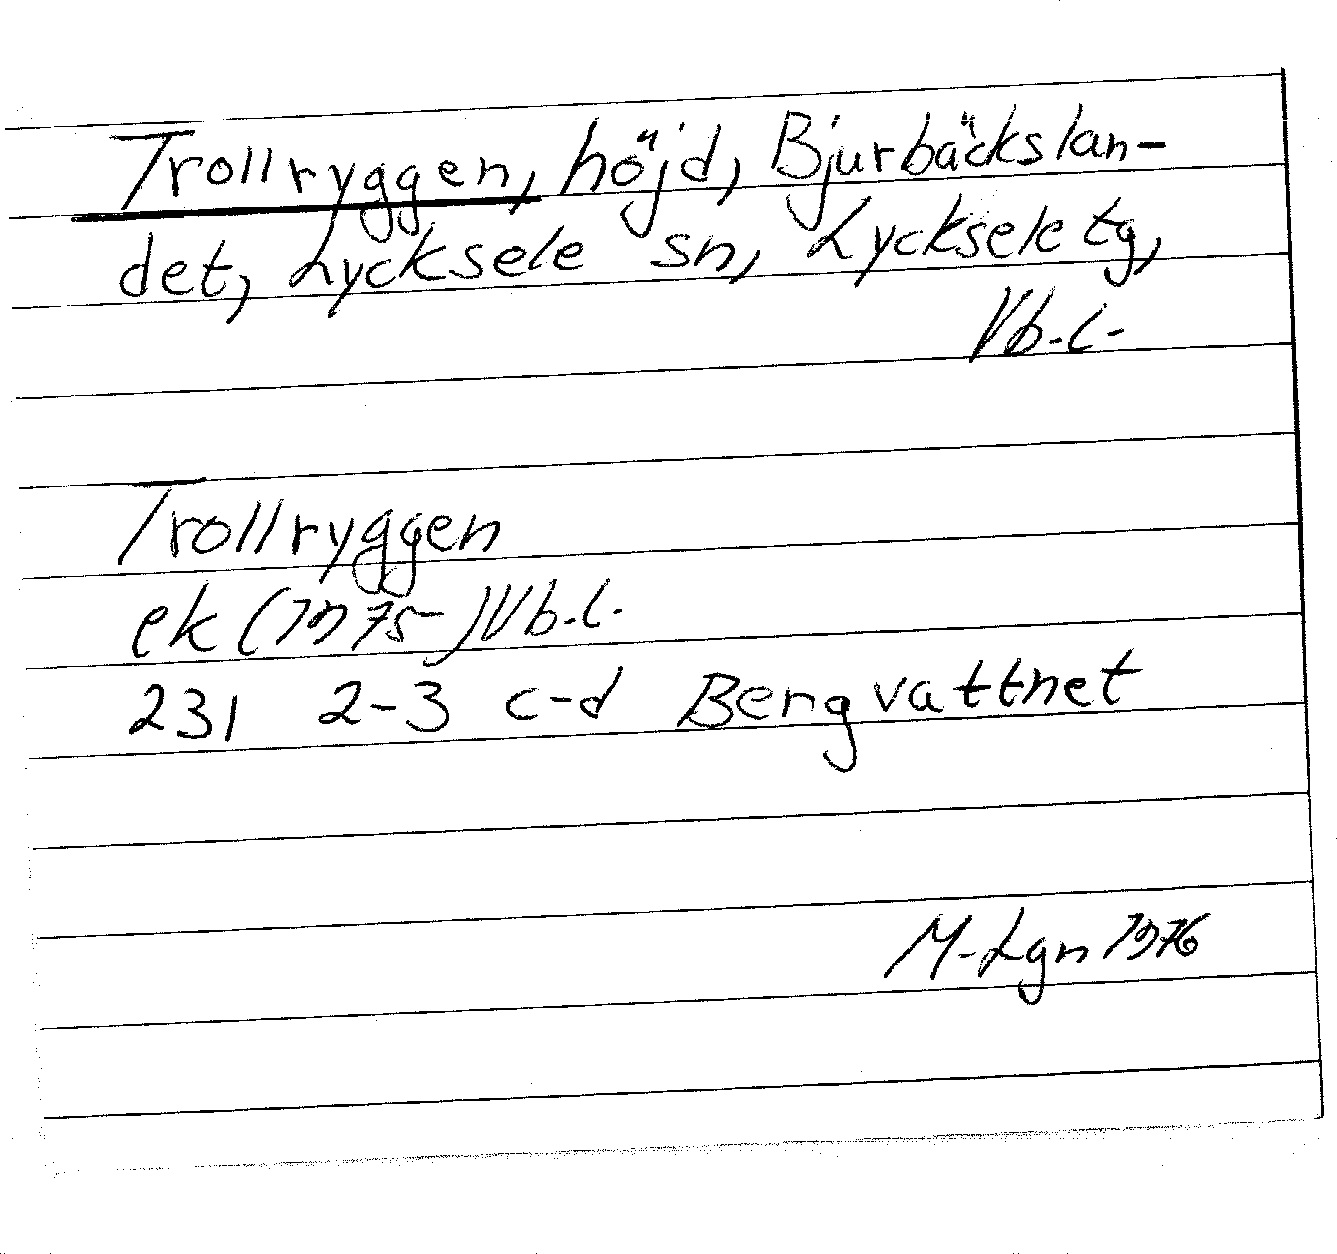 Trollryggen, höjd, Bjurbäckslan-
det, Lycksele sn, Lycksele tg,
Vb. l.
Trollryggen
ek (1975) Vb. l.
231 2-3 c-d Bergvattnet
M. Lgn 1976